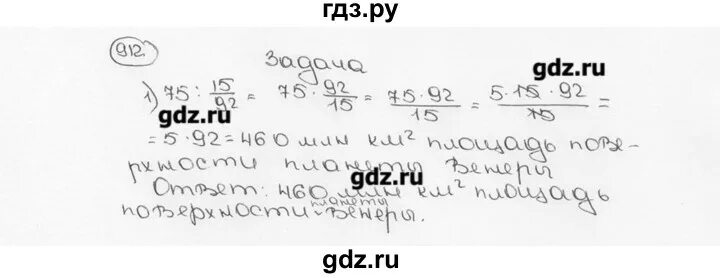 гдз.ру
912
Задача
gdz.ru
1) 75 : 15/92 = 75 · 92/15 = 75 · 92/15 = 5 · 15 · 92/15 =
gdz.ru
= 5 · 92 = 460 млн км² площадь пове-
рхности планеты Венеры
gdz.ru
Ответ: 460 млн км² площадь
поверхности планеты Венеры.
gdz.ru